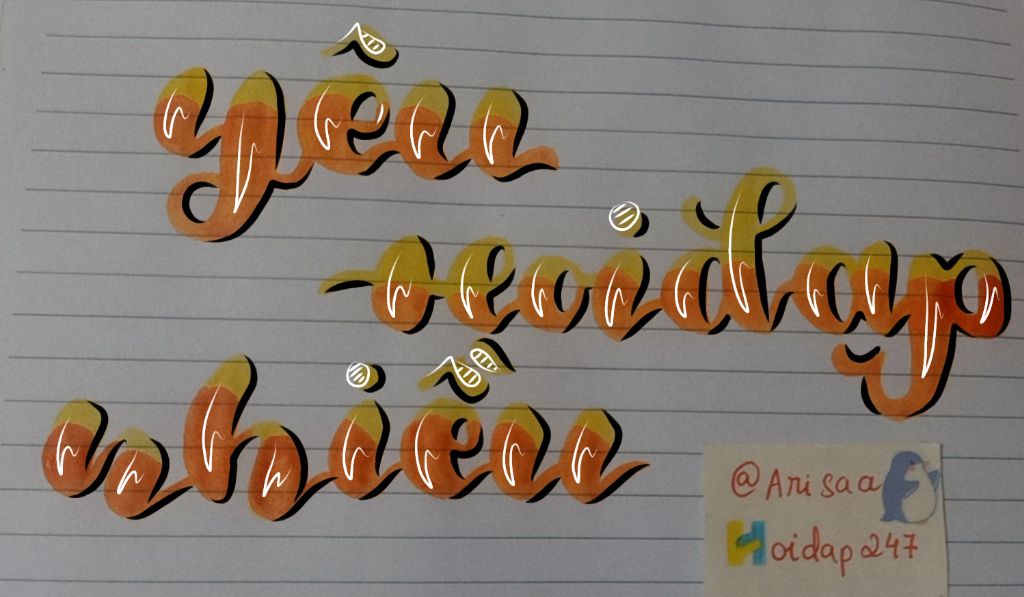 yêu
Hoidap
nhiều
@Arisaa
Hoidap247